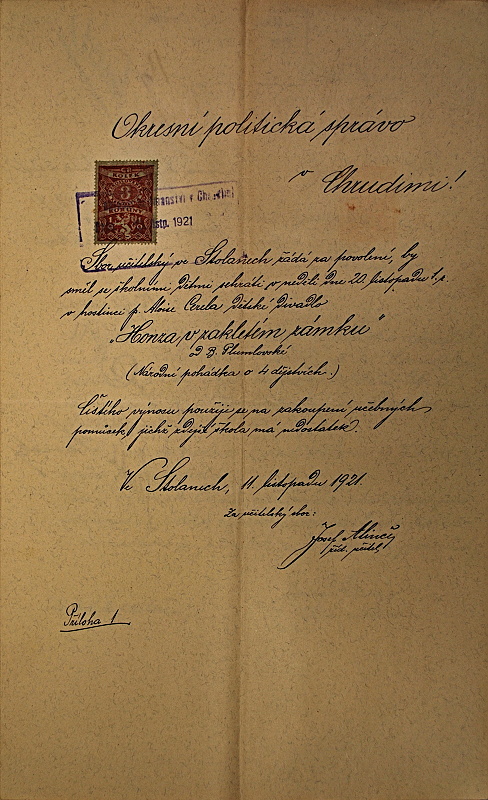 Okresní politická správo
v Chrudimi!
KOLEK
KORUNY
listp. 1921
Sbor učitelský ve Stolanech žádá za povolení, by
směl se školními dětmi sehráti v neděli dne 20. listopadu t. r.
v hostinci p. Aloise Cerela dětské divadlo
„Honza v zakletém zámku"
od B. Plumlovské
(Národní pohádka o 4 dějstvích.)
Čistého výnosu použije se na zakoupení učebných
pomůcek, jichž zdejší škola má nedostatek.
Ve Stolanech, 11. listopadu 1921.
Za učitelský sbor:
Josef
říd. učitel
Příloha 1